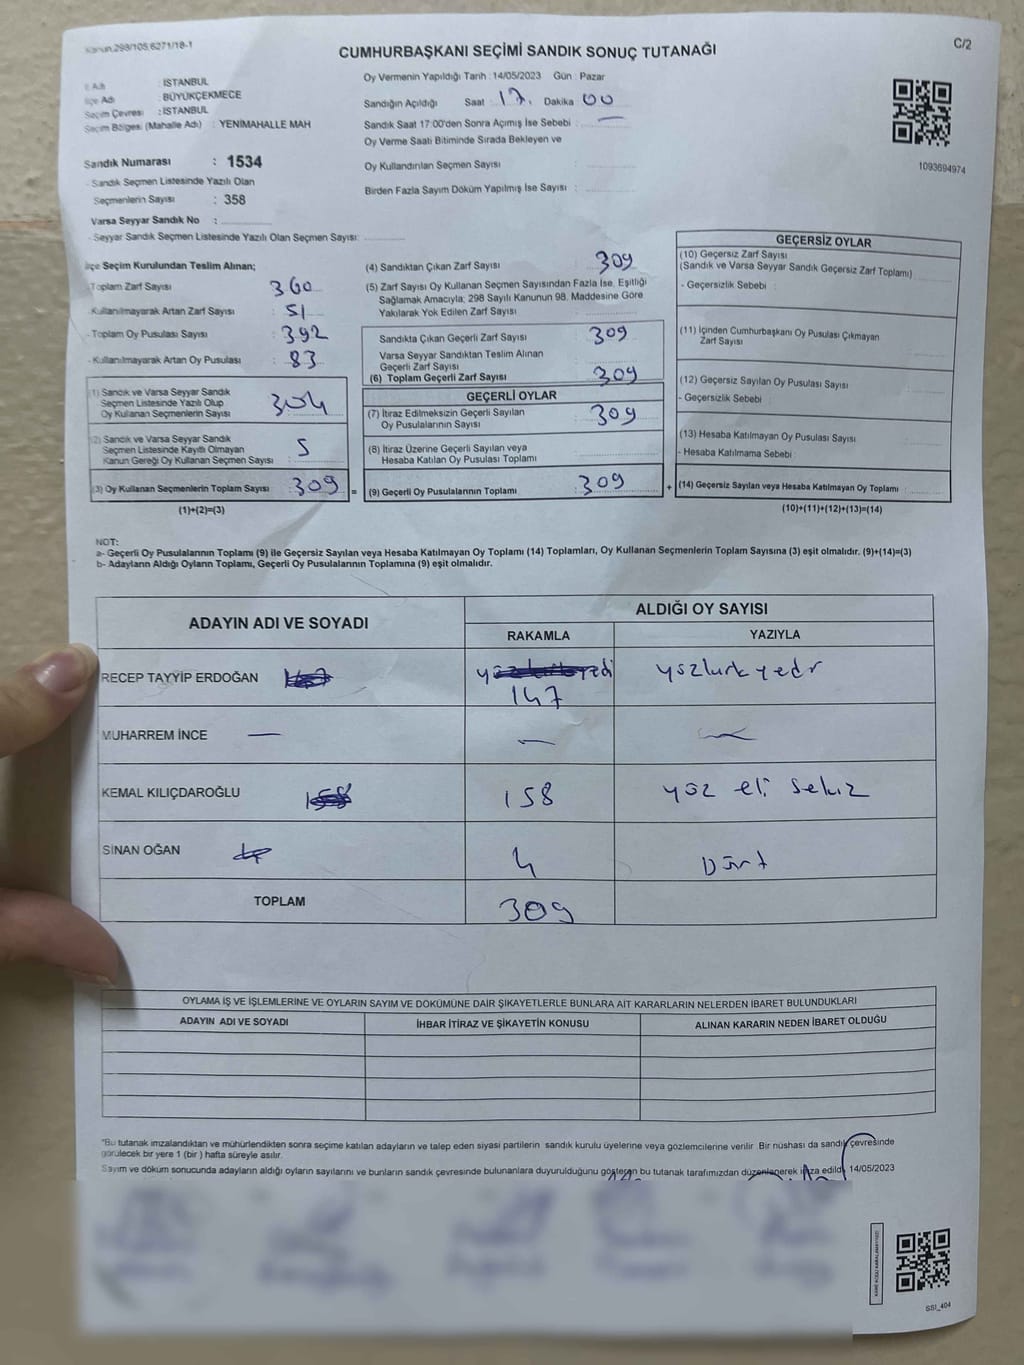 Kanun.298/105,6271/18-1
C/2
CUMHURBAŞKANI SEÇİMİ SANDIK SONUÇ TUTANAĞI
İl Adı : İSTANBUL
İlçe Adı : BÜYÜKÇEKMECE
Seçim Çevresi : İSTANBUL
Seçim Bölgesi (Mahalle Adı) : YENİMAHALLE MAH
Sandık Numarası : 1534
- Sandık Seçmen Listesinde Yazılı Olan
Seçmenlerin Sayısı : 358
Varsa Seyyar Sandık No :
- Seyyar Sandık Seçmen Listesinde Yazılı Olan Seçmen Sayısı:
Oy Vermenin Yapıldığı Tarih : 14/05/2023 Gün : Pazar
Sandığın Açıldığı Saat : 17. Dakika : 00
Sandık Saat 17:00'den Sonra Açımış İse Sebebi : —
Oy Verme Saati Bitiminde Sırada Bekleyen ve
Oy Kullandırılan Seçmen Sayısı :
Birden Fazla Sayım Döküm Yapılmış İse Sayısı :
1093694974
İlçe Seçim Kurulundan Teslim Alınan;
- Toplam Zarf Sayısı : 360
- Kullanılmayarak Artan Zarf Sayısı : 51
- Toplam Oy Pusulası Sayısı : 392
- Kullanılmayarak Artan Oy Pusulası : 83
(1) Sandık ve Varsa Seyyar Sandık
Seçmen Listesinde Yazılı Olup
Oy Kullanan Seçmenlerin Sayısı : 304
(2) Sandık ve Varsa Seyyar Sandık
Seçmen Listesinde Kayıtlı Olmayan
Kanun Gereği Oy Kullanan Seçmen Sayısı : 5
(3) Oy Kullanan Seçmenlerin Toplam Sayısı : 309 =
(1)+(2)=(3)
(4) Sandıktan Çıkan Zarf Sayısı : 309
(5) Zarf Sayısı Oy Kullanan Seçmen Sayısından Fazla İse, Eşitliği
Sağlamak Amacıyla; 298 Sayılı Kanunun 98. Maddesine Göre
Yakılarak Yok Edilen Zarf Sayısı :
Sandıkta Çıkan Geçerli Zarf Sayısı : 309
Varsa Seyyar Sandıktan Teslim Alınan
Geçerli Zarf Sayısı :
(6) Toplam Geçerli Zarf Sayısı : 309
GEÇERLİ OYLAR
(7) İtiraz Edilmeksizin Geçerli Sayılan
Oy Pusulalarının Sayısı : 309
(8) İtiraz Üzerine Geçerli Sayılan veya
Hesaba Katılan Oy Pusulası Toplamı :
(9) Geçerli Oy Pusulalarının Toplamı : 309 +
GEÇERSİZ OYLAR
(10) Geçersiz Zarf Sayısı
(Sandık ve Varsa Seyyar Sandık Geçersiz Zarf Toplamı) :
- Geçersizlik Sebebi :
(11) İçinden Cumhurbaşkanı Oy Pusulası Çıkmayan
Zarf Sayısı :
(12) Geçersiz Sayılan Oy Pusulası Sayısı :
- Geçersizlik Sebebi :
(13) Hesaba Katılmayan Oy Pusulası Sayısı :
- Hesaba Katılmama Sebebi :
(14) Geçersiz Sayılan veya Hesaba Katılmayan Oy Toplamı :
(10)+(11)+(12)+(13)=(14)
NOT:
a- Geçerli Oy Pusulalarının Toplamı (9) ile Geçersiz Sayılan veya Hesaba Katılmayan Oy Toplamı (14) Toplamları, Oy Kullanan Seçmenlerin Toplam Sayısına (3) eşit olmalıdır. (9)+(14)=(3)
b- Adayların Aldığı Oyların Toplamı, Geçerli Oy Pusulalarının Toplamına (9) eşit olmalıdır.
ADAYIN ADI VE SOYADI ALDIĞI OY SAYISI
RAKAMLA YAZIYLA
RECEP TAYYİP ERDOĞAN 147 yüzkırkyedi
MUHARREM İNCE — — —
KEMAL KILIÇDAROĞLU 158 yüz eli sekiz
SİNAN OĞAN 4 Dört
TOPLAM 309
OYLAMA İŞ VE İŞLEMLERİNE VE OYLARIN SAYIM VE DÖKÜMÜNE DAİR ŞİKAYETLERLE BUNLARA AİT KARARLARIN NELERDEN İBARET BULUNDUKLARI
ADAYIN ADI VE SOYADI İHBAR İTİRAZ VE ŞİKAYETİN KONUSU ALINAN KARARIN NEDEN İBARET OLDUĞU
*Bu tutanak imzalandıktan ve mühürlendikten sonra seçime katılan adayların ve talep eden siyasi partilerin sandık kurulu üyelerine veya gözlemcilerine verilir. Bir nüshası da sandık çevresinde
görülecek bir yere 1 (bir) hafta süreyle asılır.
Sayım ve döküm sonucunda adayların aldığı oyların sayılarını ve bunların sandık çevresinde bulunanlara duyurulduğunu gösteren bu tutanak tarafımızdan düzenlenerek imza edildi. 14/05/2023
SSI_404